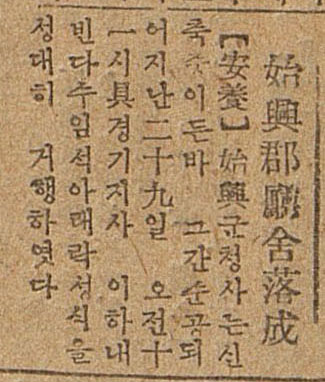 始興郡廳舍落成
【安養】始興군청사는신
축중이든바 그간순공되
어지난二十九일 오전十
一시具경기지사 이하내
빈다수임석아래락성식을
성대히 거행하엿다